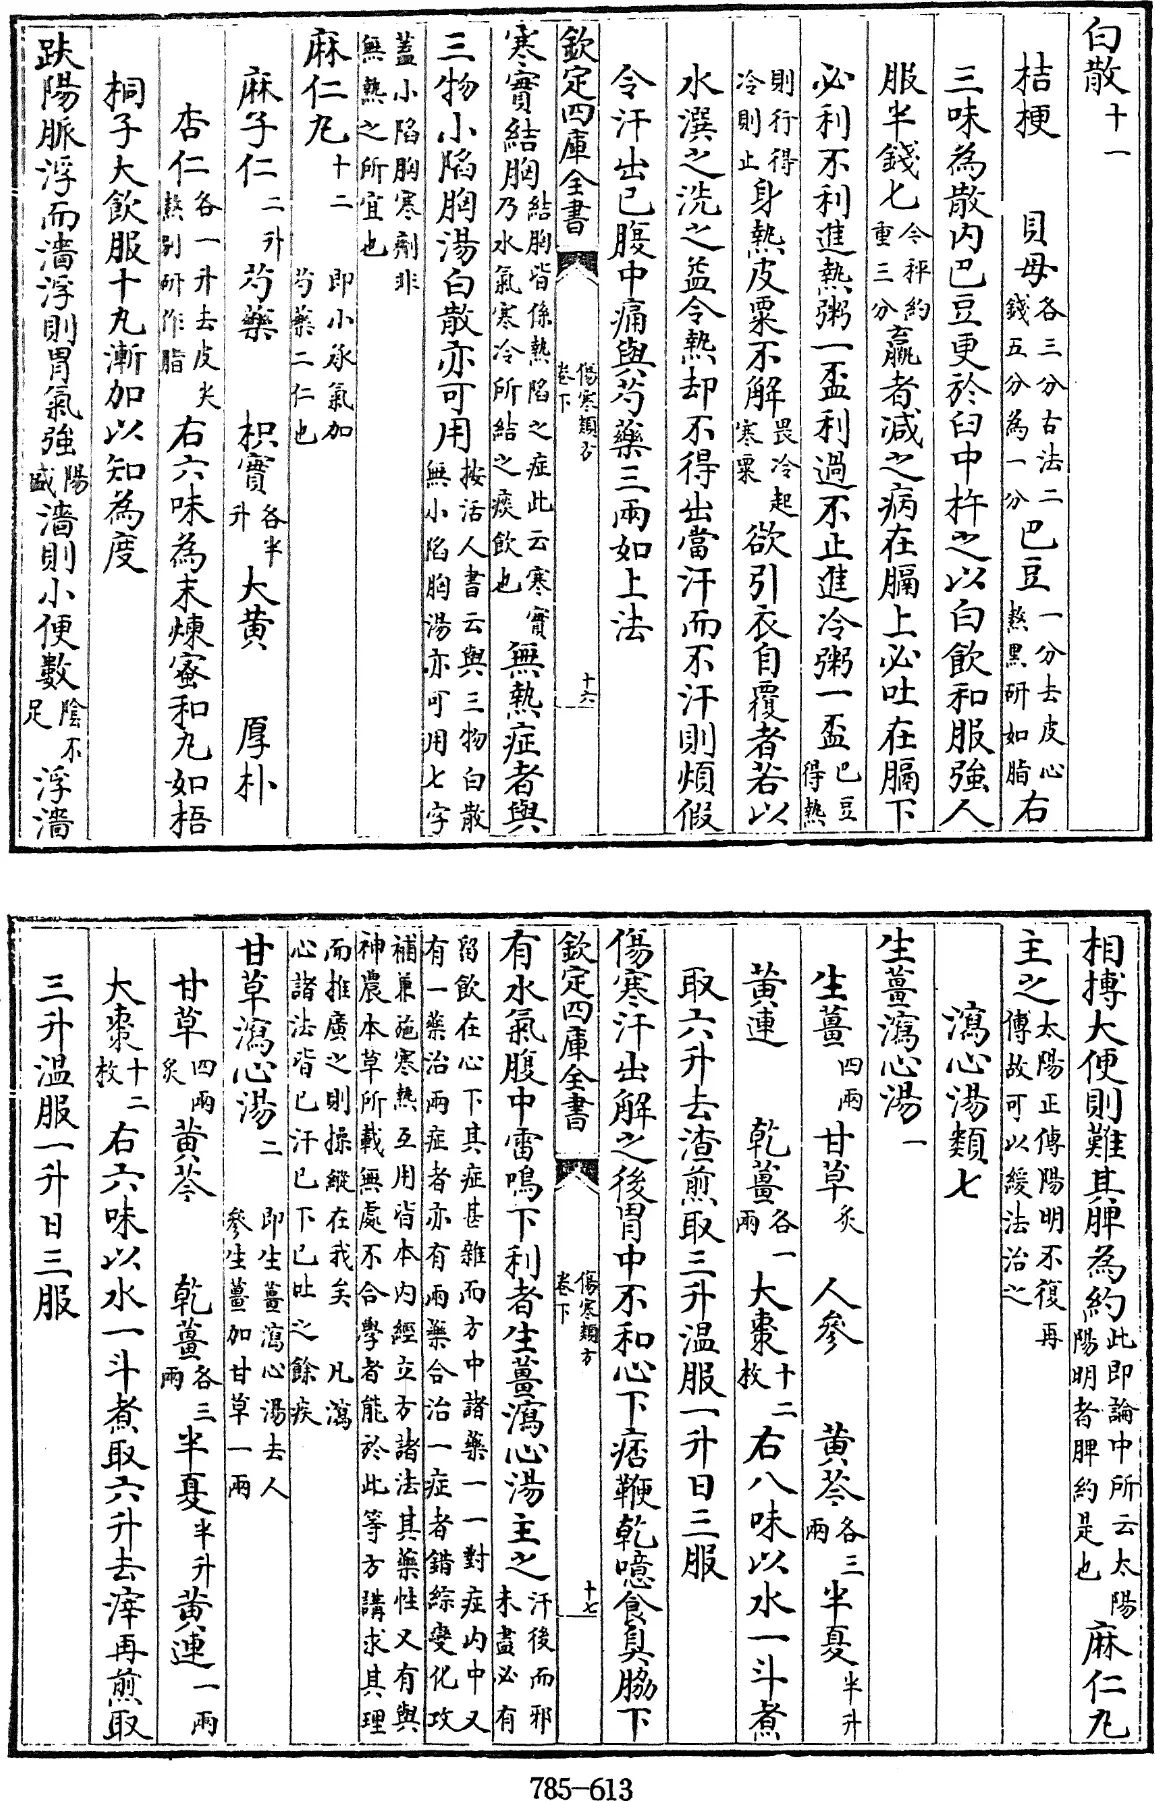 白散十一
桔梗 貝母各三分古法二錢五分為一分巴豆一分去皮心熬黑研如脂右
三味為散内巴豆更於臼中杵之以白飲和服強人
服半錢七今秤約重三分羸者減之病在膈上必吐在膈下
必利不利進熱粥一盃利過不止進冷粥一盃巴豆得熱
則行得冷則止身熱皮粟不解畏冷起寒粟欲引衣自覆者若以
水潠之洗之益令熱却不得出當汗而不汗則煩假
令汗出已腹中痛與芍藥三兩如上法
欽定四庫全書 傷寒類方卷下 十六
寒實結胸結胸皆係熱陷之症此云寒實乃水氣寒冷所結之痰飲也無熱症者與
三物小陷胸湯白散亦可用按活人書云與三物白散無小陷胸湯亦可用七字
蓋小陷胸寒劑非無熱之所宜也
麻仁丸十二 即小承氣加芍藥二仁也
麻子仁二升芍藥 枳實各半升大黄 厚朴
杏仁各一升去皮尖熬别研作脂右六味為末煉蜜和丸如梧
桐子大飲服十丸漸加以知為度
趺陽脈浮而濇浮則胃氣強陽盛濇則小便數陰不足浮濇
相搏大便則難其脾為約此即論中所云太陽陽明者脾約是也麻仁丸
主之太陽正傳陽明不復再傳故可以緩法治之
瀉心湯類七
生薑瀉心湯一
生薑四兩甘草炙 人參 黄芩各三兩半夏半升
黄連 乾薑各一兩大棗十二枚右八味以水一斗煮
取六升去渣煎取三升温服一升日三服
傷寒汗出解之後胃中不和心下痞鞕乾噫食臭脇下
欽定四庫全書 傷寒類方卷下 十七
有水氣腹中雷鳴下利者生薑瀉心湯主之汗後而邪未盡必有
留飲在心下其症甚雜而方中諸藥一一對症内中又有一藥治兩症者亦有兩藥合治一症者錯綜變化攻
補兼施寒熱互用皆本内經立方諸法其藥性又有與神農本草所載無處不合學者能於此等方講求其理
而推廣之則操縱在我矣 凡瀉心諸法皆已汗已下已吐之餘疾
甘草瀉心湯二 即生薑瀉心湯去人參生薑加甘草一兩
甘草四兩炙黄芩 乾薑各三兩半夏半升黄連一兩
大棗十二枚右六味以水一斗煮取六升去滓再煎取
三升温服一升日三服
785-613